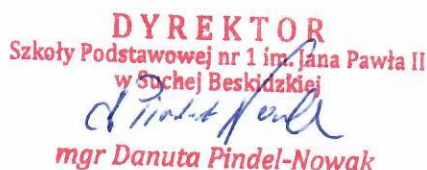 DYREKTOR
Szkoły Podstawowej nr 1 im. Jana Pawła II
w Suchej Beskidzkiej
D Pindel Nowak
mgr Danuta Pindel-Nowak